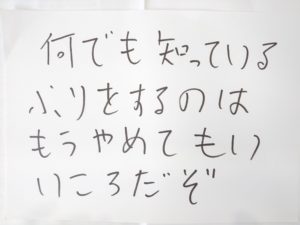 何でも知っている
ふりをするのは
もうやめてもい
いころだぞ